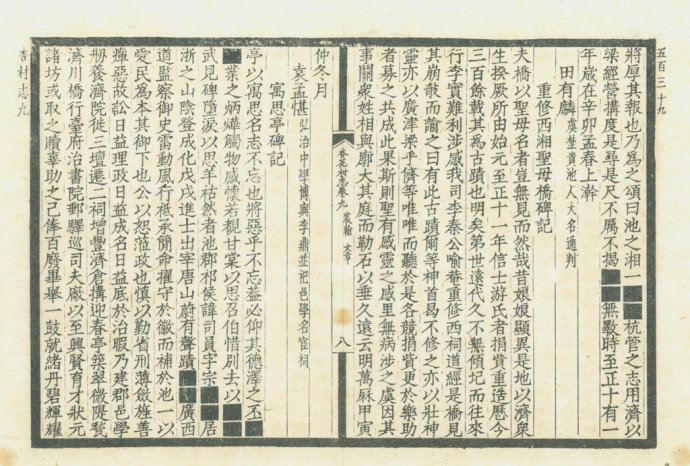 五百三十九
將厚其報也乃為之頌曰池之湘一■■杭管之志用濟以
梁經營構度是尋是尺不厲不揭■■無斁時至正十有一
年歲在辛卯孟春上澣
田有麟虞堂貴池人大名通判
重修西湘聖母橋碑記
夫橋以聖母名者豈無見而然哉昔娘娘顯異是地以濟眾
生揆厥所由始元至正十一年信士游氏者捐貲重造歷今
三百餘載其為古蹟也明矣第世遠代久不無傾圮而往來
行李實難利涉感我司李秦公喻菴重修西祠道經是橋見
其崩攲而諭之曰有此古蹟爾等神首曷不修之亦以壯神
靈亦以廣津梁乎儕等唯唯而聽於是各競捐貲更於樂助
者募之共成此果斯則聖有感靈之感里無病涉之虞因其
事關眾姓相與廓大其庭而勒石以垂久遠云明萬厤甲寅
杏花村志卷九 宸翰 文章
八
仲冬月
袁孟愖弘治中學博與李鼎並祀邑學名宦祠
寓思亭碑記
亭以寓思名志不忘也將惡乎不忘葢必仰其德澤之丕■■
■■業之炳燁觸物感懷若覩甘棠以思召伯惜別去以■■
武見碑墮淚以思羊祜然者池郡祁侯諱司員字宗■■居
浙之山陰登成化戊戌進士出宰唐山蔚有聲蹟■■廣西
道監察御史雷動風行秪承簡命擢守於徽而補於池一以
愛民為本其御下也公以恕蒞政也慎以勤省刑薄斂旌善
癉惡故訟日益理政日益成名日益底於治暇乃建郡邑學
剏養濟院徙三壇遷二祠增豐濟倉搆迎春亭築翠微隄甃
濟川橋行臺府治書院郵驛巡司夫廠以至興賢育才狀元
諸坊或取之贖辜助之己俸百廢畢舉一鼓就緒丹碧輝耀
杏村志九